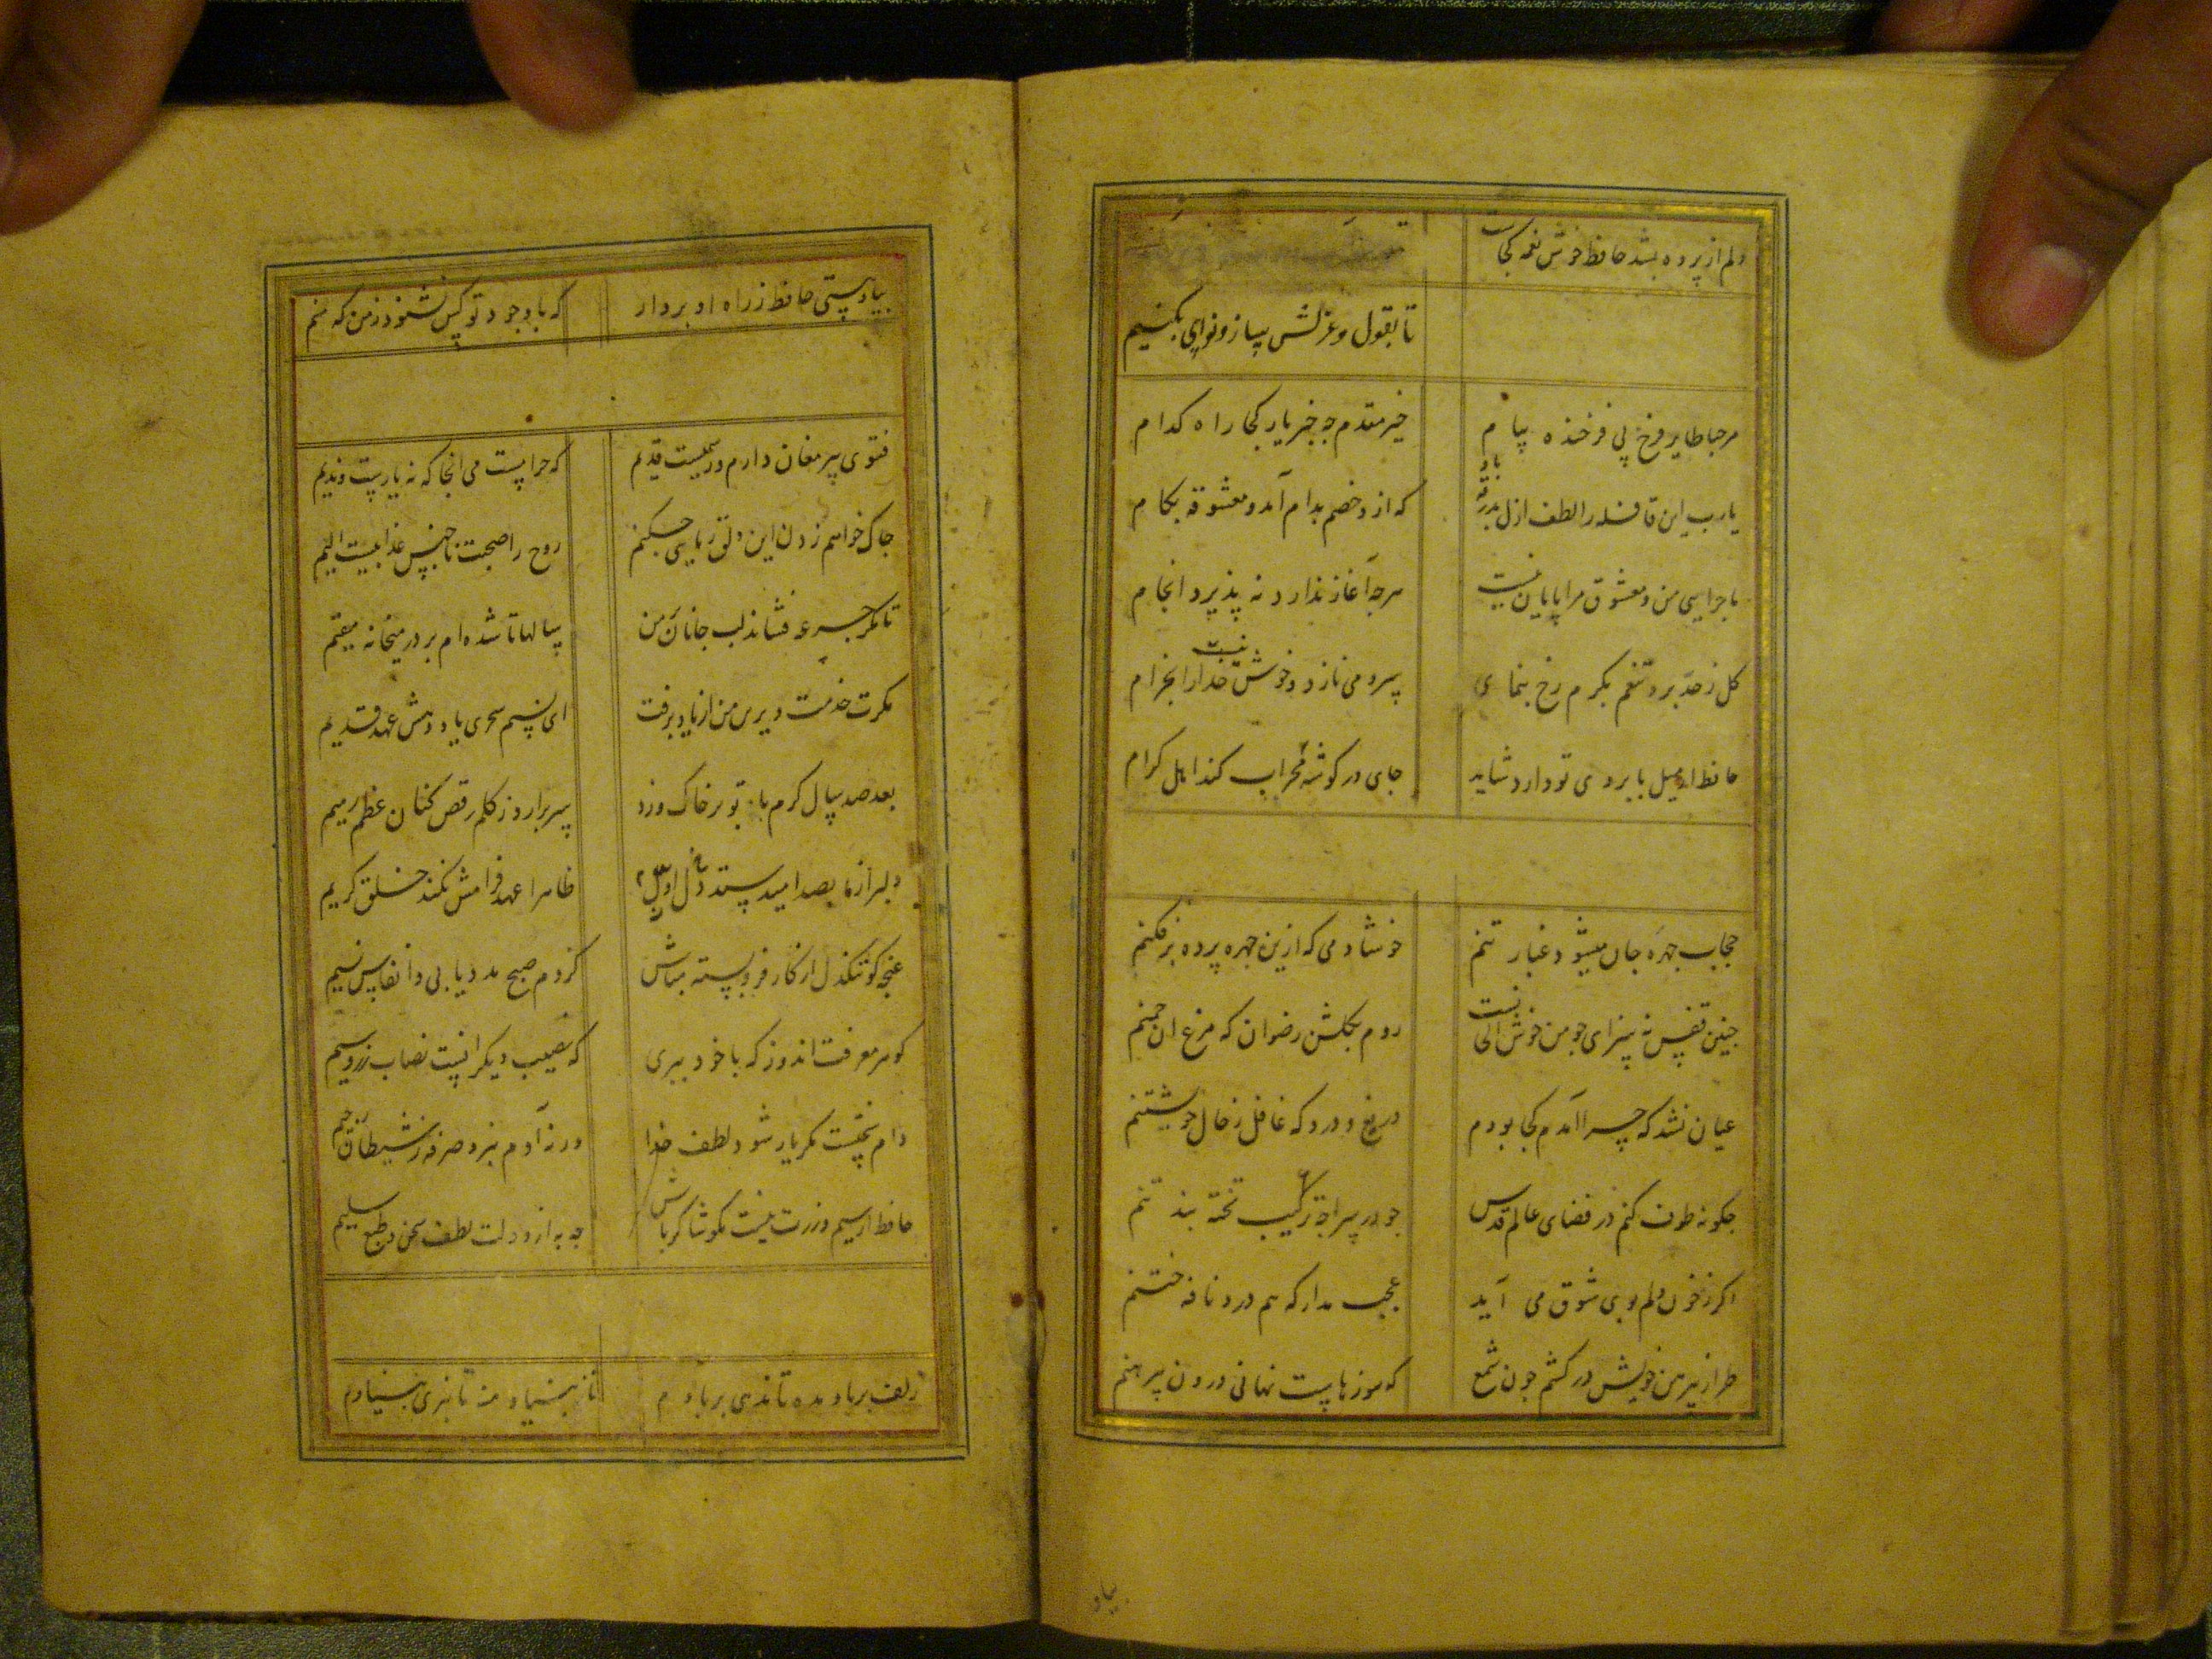 دلم از پرده بشد حافظ خوش نغمه کجاست
تا بقول و غزلش ساز و نوایی بکنیم
مرحبا طایر فرخ پی فرخنده پیام خیر مقدم چه خبر یار کجا راه کدام
یا رب این قافله را لطف ازل بدرقه باد که ازو خصم بدام آمد و معشوقه بکام
ماجرایی من و معشوق مرا پایان نیست هرچه آغاز ندارد نه پذیرد انجام
کل ز حد برد تنعم بکرم رخ بنمای سرو می نازد و خوش نیست خدا را بخرام
حافظ ار میل بابروی تو دارد شاید جای در کوشه محراب کنند اهل کرام
حجاب چهره جان میشود غبار تنم خوشا دمی که ازین چهره پرده بر فکنم
چنین قفس نه سزای چو من خوش الحانیست روم بکلشن رضوان که مرغ ان چمنم
عیان نشد که چرا آمدم کجا بودم دریغ و درد که غافل ز حال خویشتنم
چکونه طوف کنم در فضای عالم قدس چو در سراچه ترکیب تخته بند تنم
اکر ز خون دلم بوی شوق می آید عجب مدار که هم درد نافه ختنم
طراز پیرهن خویش در کشم چون شمع که سوزهاست نهانی درون پیرهنم
بیا و
بیا و هستی حافظ ز راه او بردار که با وجود تو کس نشنود ز من که منم
فتوی پیر مغان دارم و رسمیست قدیم که حرامست می انجا که نه یارست و ندیم
چاک خواهم زدن این دلق ریایی چکنم روح را صحبت ناجنس عذابیست الیم
تا مکر جرعه فشاند لب جانان من سالها تا شده ام بر در میخانه مقیم
مکرت خدمت دیرین من از یاد برفت ای نسیم سحری یاد دهش عهد قدیم
بعد صد سال کرم بار تو بر خاک وزد سر برارد ز کلم رقص کنان عظم رمیم
دلبر از ما بصد امید ستد اول دل ظاهرا عهد فرامش نکند خلق کریم
غنچه کو تنکدل از کار فروبسته مباش کز دم صبح مدد یابی و انفاس نسیم
کوهر معرفت اندوز که با خود ببری که نصیب دیکرانست نصاب زر و سیم
دام سختست مکر یار شود لطف خدا ورنه آدم نبرد صرفه ز شیطان رجیم
حافظ ار سیم و زرت نیست مکو شاکر باش چه به از دولت لطف سخن و طبع سلیم
زلف بر باد مده تا ندهی بر بادم ناز بنیاد منه تا نبری بنیادم